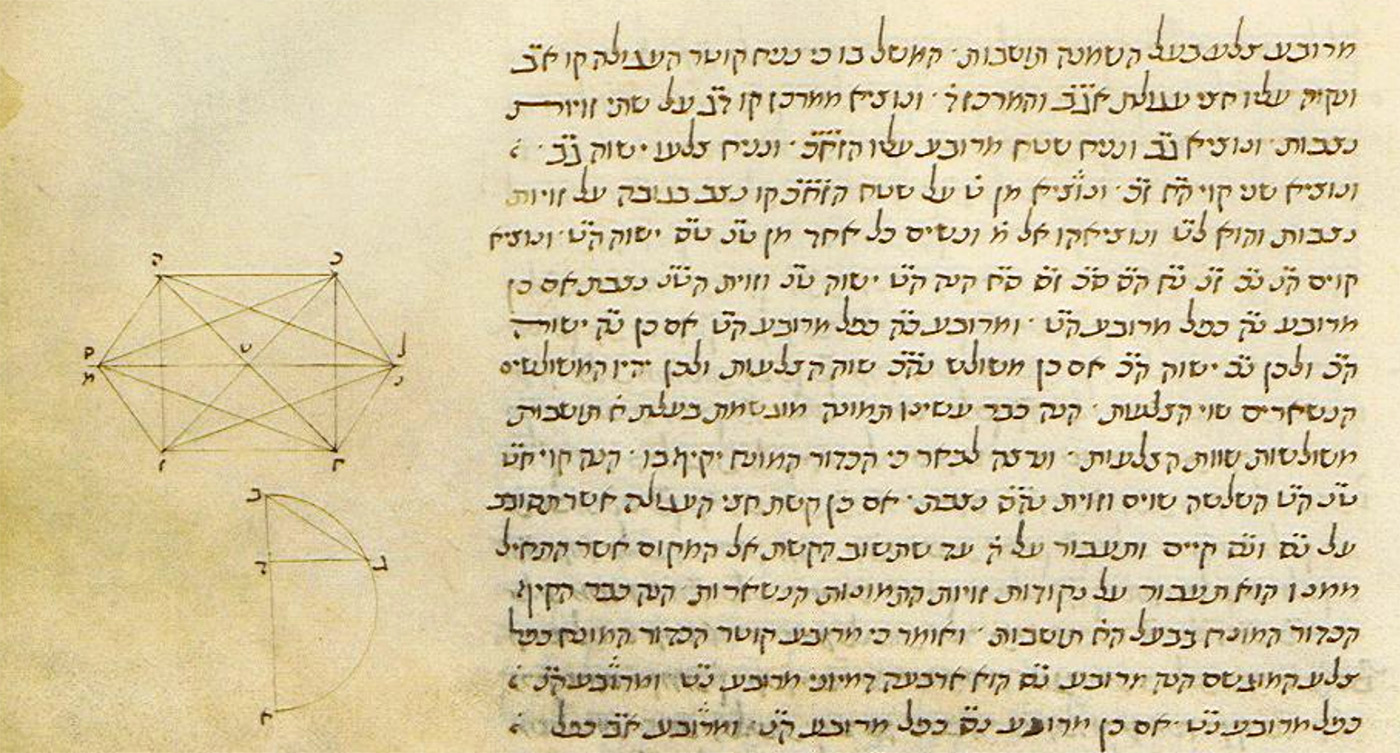 מרובע צלע בעל השמנה תושבות · המשל בו כי נניח קוטר העגולה קו אב
ונקוה עליו חצי עגולת אגב והמרכז ד · ונוציא ממרכז קו דג על שתי זויות
נצבות · ונוציא גב ונניח שטח מרובע עליו הזחכ · ונניח צלעו ישוה גב ·
ונוציא שני קוי הח זכ · ונוציא מן ט על שטח הזחכ קו נצב בגובה על זויות
נצבות והוא לט ונוציאהו אל מ ונשים כל אחד מן טנ טס ישוה הט · ונוציא
קוים הנ נכ זנ נח הס סכ זס סח הנה הט ישוה טנ וזוית הטנ נצבת אם כן
מרובע נה כפל מרובע הט · ומרובע כה כפל מרובע הט אם כן נה ישוה
הכ ולכן נכ ישוה הכ אם כן משולש נהכ שוה הצלעות ולכן יהיו המשולשים
הנשארים שוי הצלעות · הנה כבר עשינו תמונה מוגשמת בעלת ח תושבות
משולשות שוות הצלעות · ונרצה לבאר כי הכדור המונח יקיף בו · הנה קוי חט
טנ הט השלשה שוים וזוית נהס נצבת · אם כן קשת חצי העגולה אשר תסובב
על נס ונס קיים ותעבור על ה עד שתשוב הקשת אל המקום אשר התחיל
ממנו הוא תעבור על נקודות זויות התמונות הנשארות הנה כבר הקיף
הכדור המונח בבעל הח תושבות · ואומר כי מרובע קוטר הכדור המונח כפל
צלע המוגשם הנה מרובע נס הוא ארבעה דמיוני מרובע נט ומרובע הנ
כפל מרובע נט · אם כן מרובע נס כפל מרובע הנ · ומרובע אב כפל
כ ה
ל ט ס
נ מ
ח ז
ב
ג ד
א